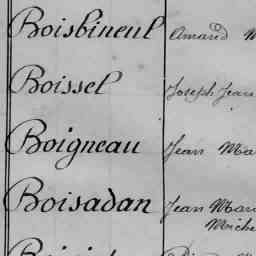 Boisbineul Amand
Boissel Joseph Jean
Boigneau Jean Ma
Boisadan Jean Mau
Miche